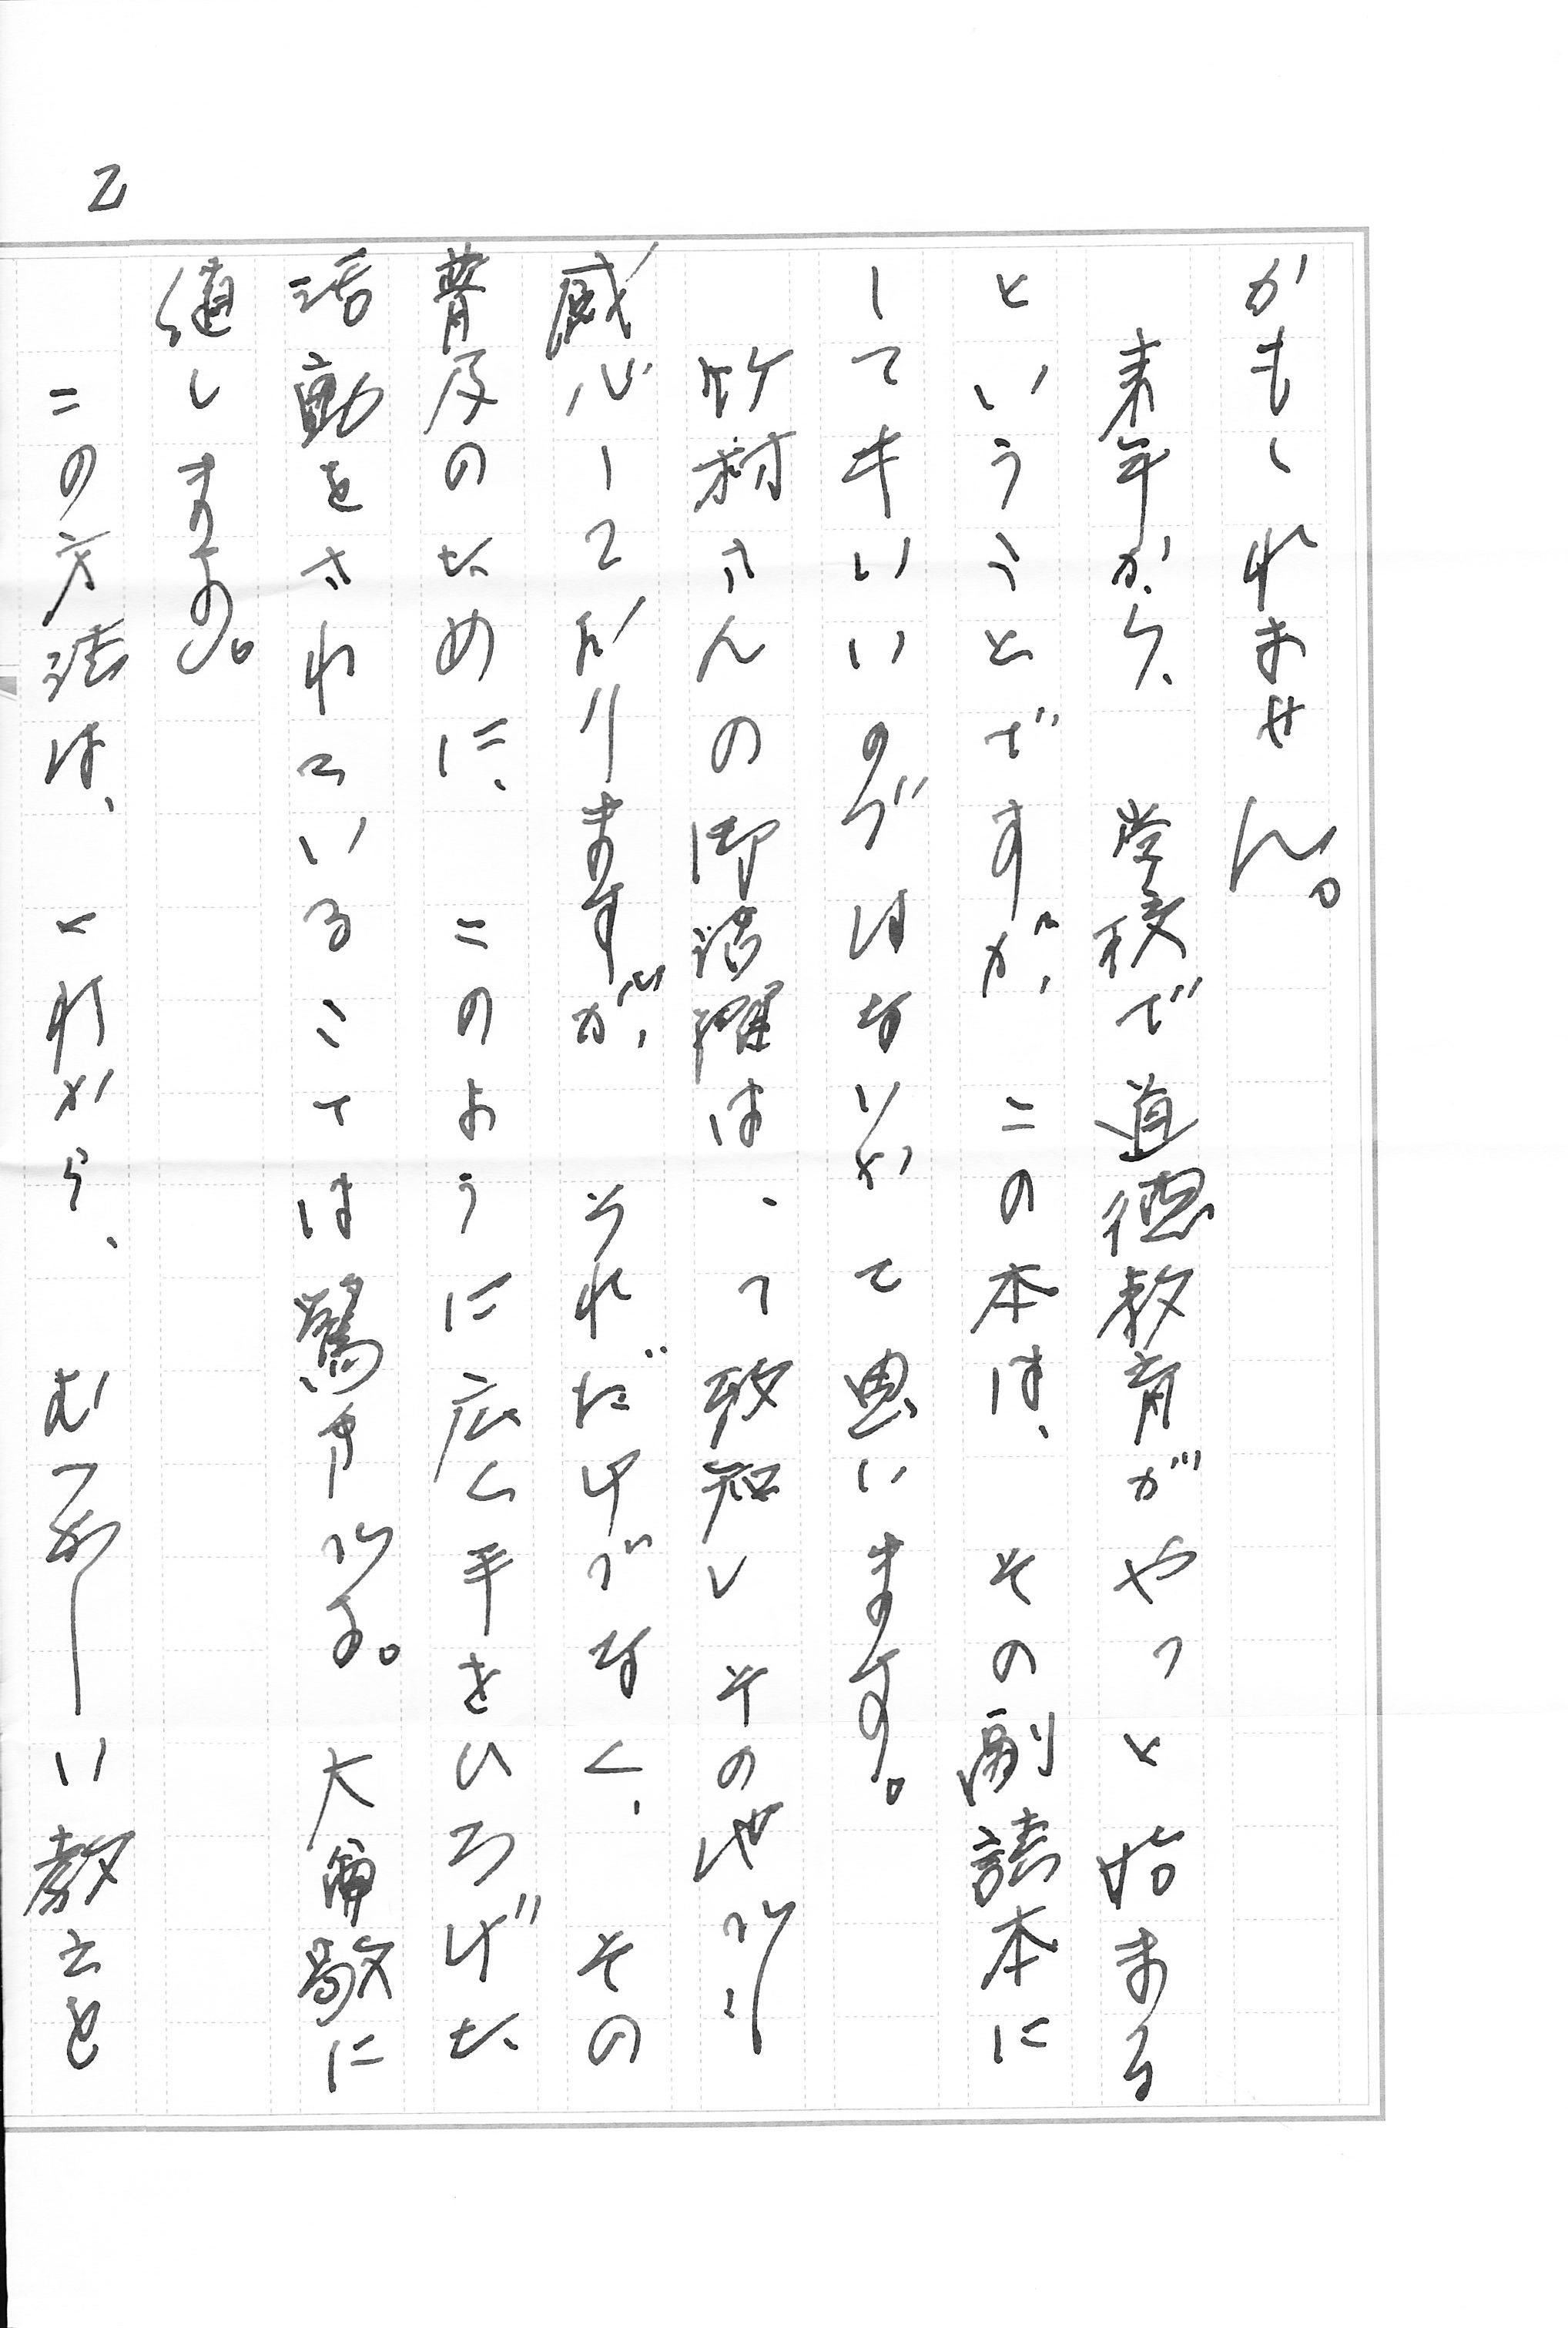 2
かもしれません。
来年から、学校で道徳教育がやっと始まる
ということですが、この本は、その副読本に
してもいいのではないかと思います。
竹村さんの御活躍は、 知し その
感心しておりますが、それだけでなく、その
普及のために、このように広く手をひろげた
活動をされていることには驚きです。大変 敬に
値します。
この方法は、これから、むずかしい教えを